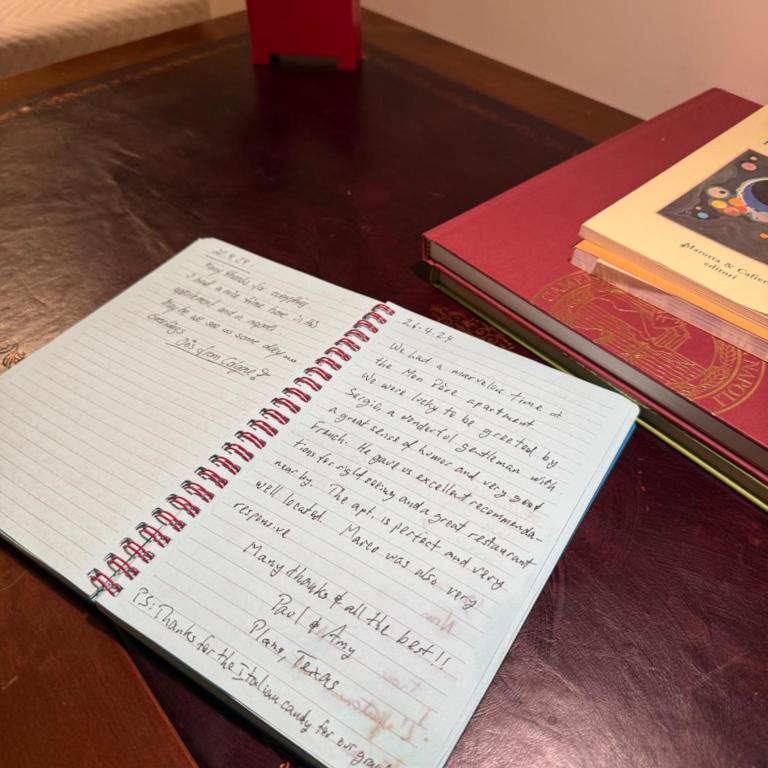 Many thanks for everything
I had a nice time here in this
apartment and in
Maybe we see us some day
Greetings
from Cologne
26.4.24
We had a marvelous time at
the Mon Père apartment
We were lucky to be greeted by
Sergio, a wonderful gentleman with
a great sense of humor and very good
French. He gave us excellent recommenda-
tions for sight seeing and a great restaurant
near by. The apt. is perfect and very
well located. Marco was also very
responsive
Many thanks & all the best!!
Paul & Amy
Plano, Texas
PS: Thanks for the Italian candy for our
Marotta & Cafier
editori